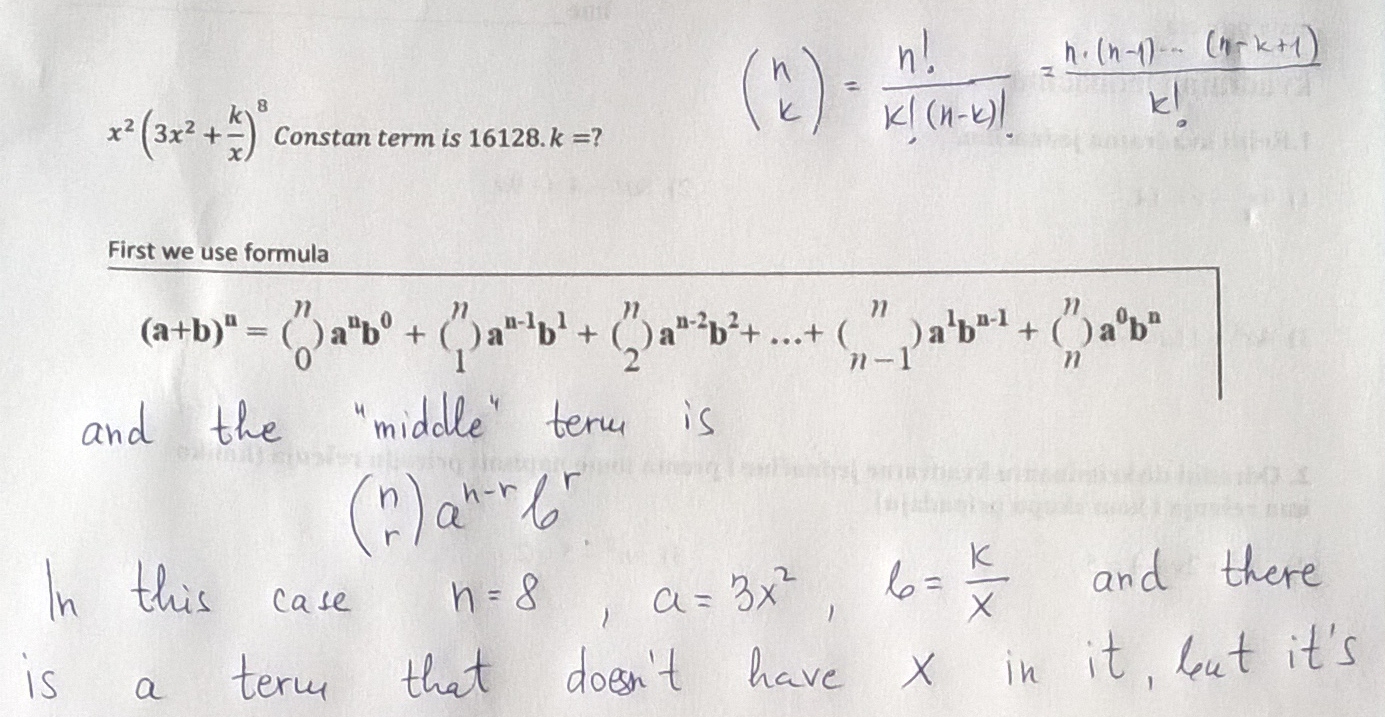 (n k) = n! / k!(n-k)! = n·(n-1)... (n-k+1) / k!
x² (3x² + k/x)⁸ Constan term is 16128. k =?
First we use formula
(a+b)ⁿ = (n 0)aⁿb⁰ + (n 1)aⁿ⁻¹b¹ + (n 2)aⁿ⁻²b²+ ...+ (n n-1)a¹bⁿ⁻¹ + (n n)a⁰bⁿ
and the "middle" term is
(n r) aⁿ⁻ʳ bʳ.
In this case n=8 , a=3x² , b= k/x and there
is a term that doesn't have x in it, but it's